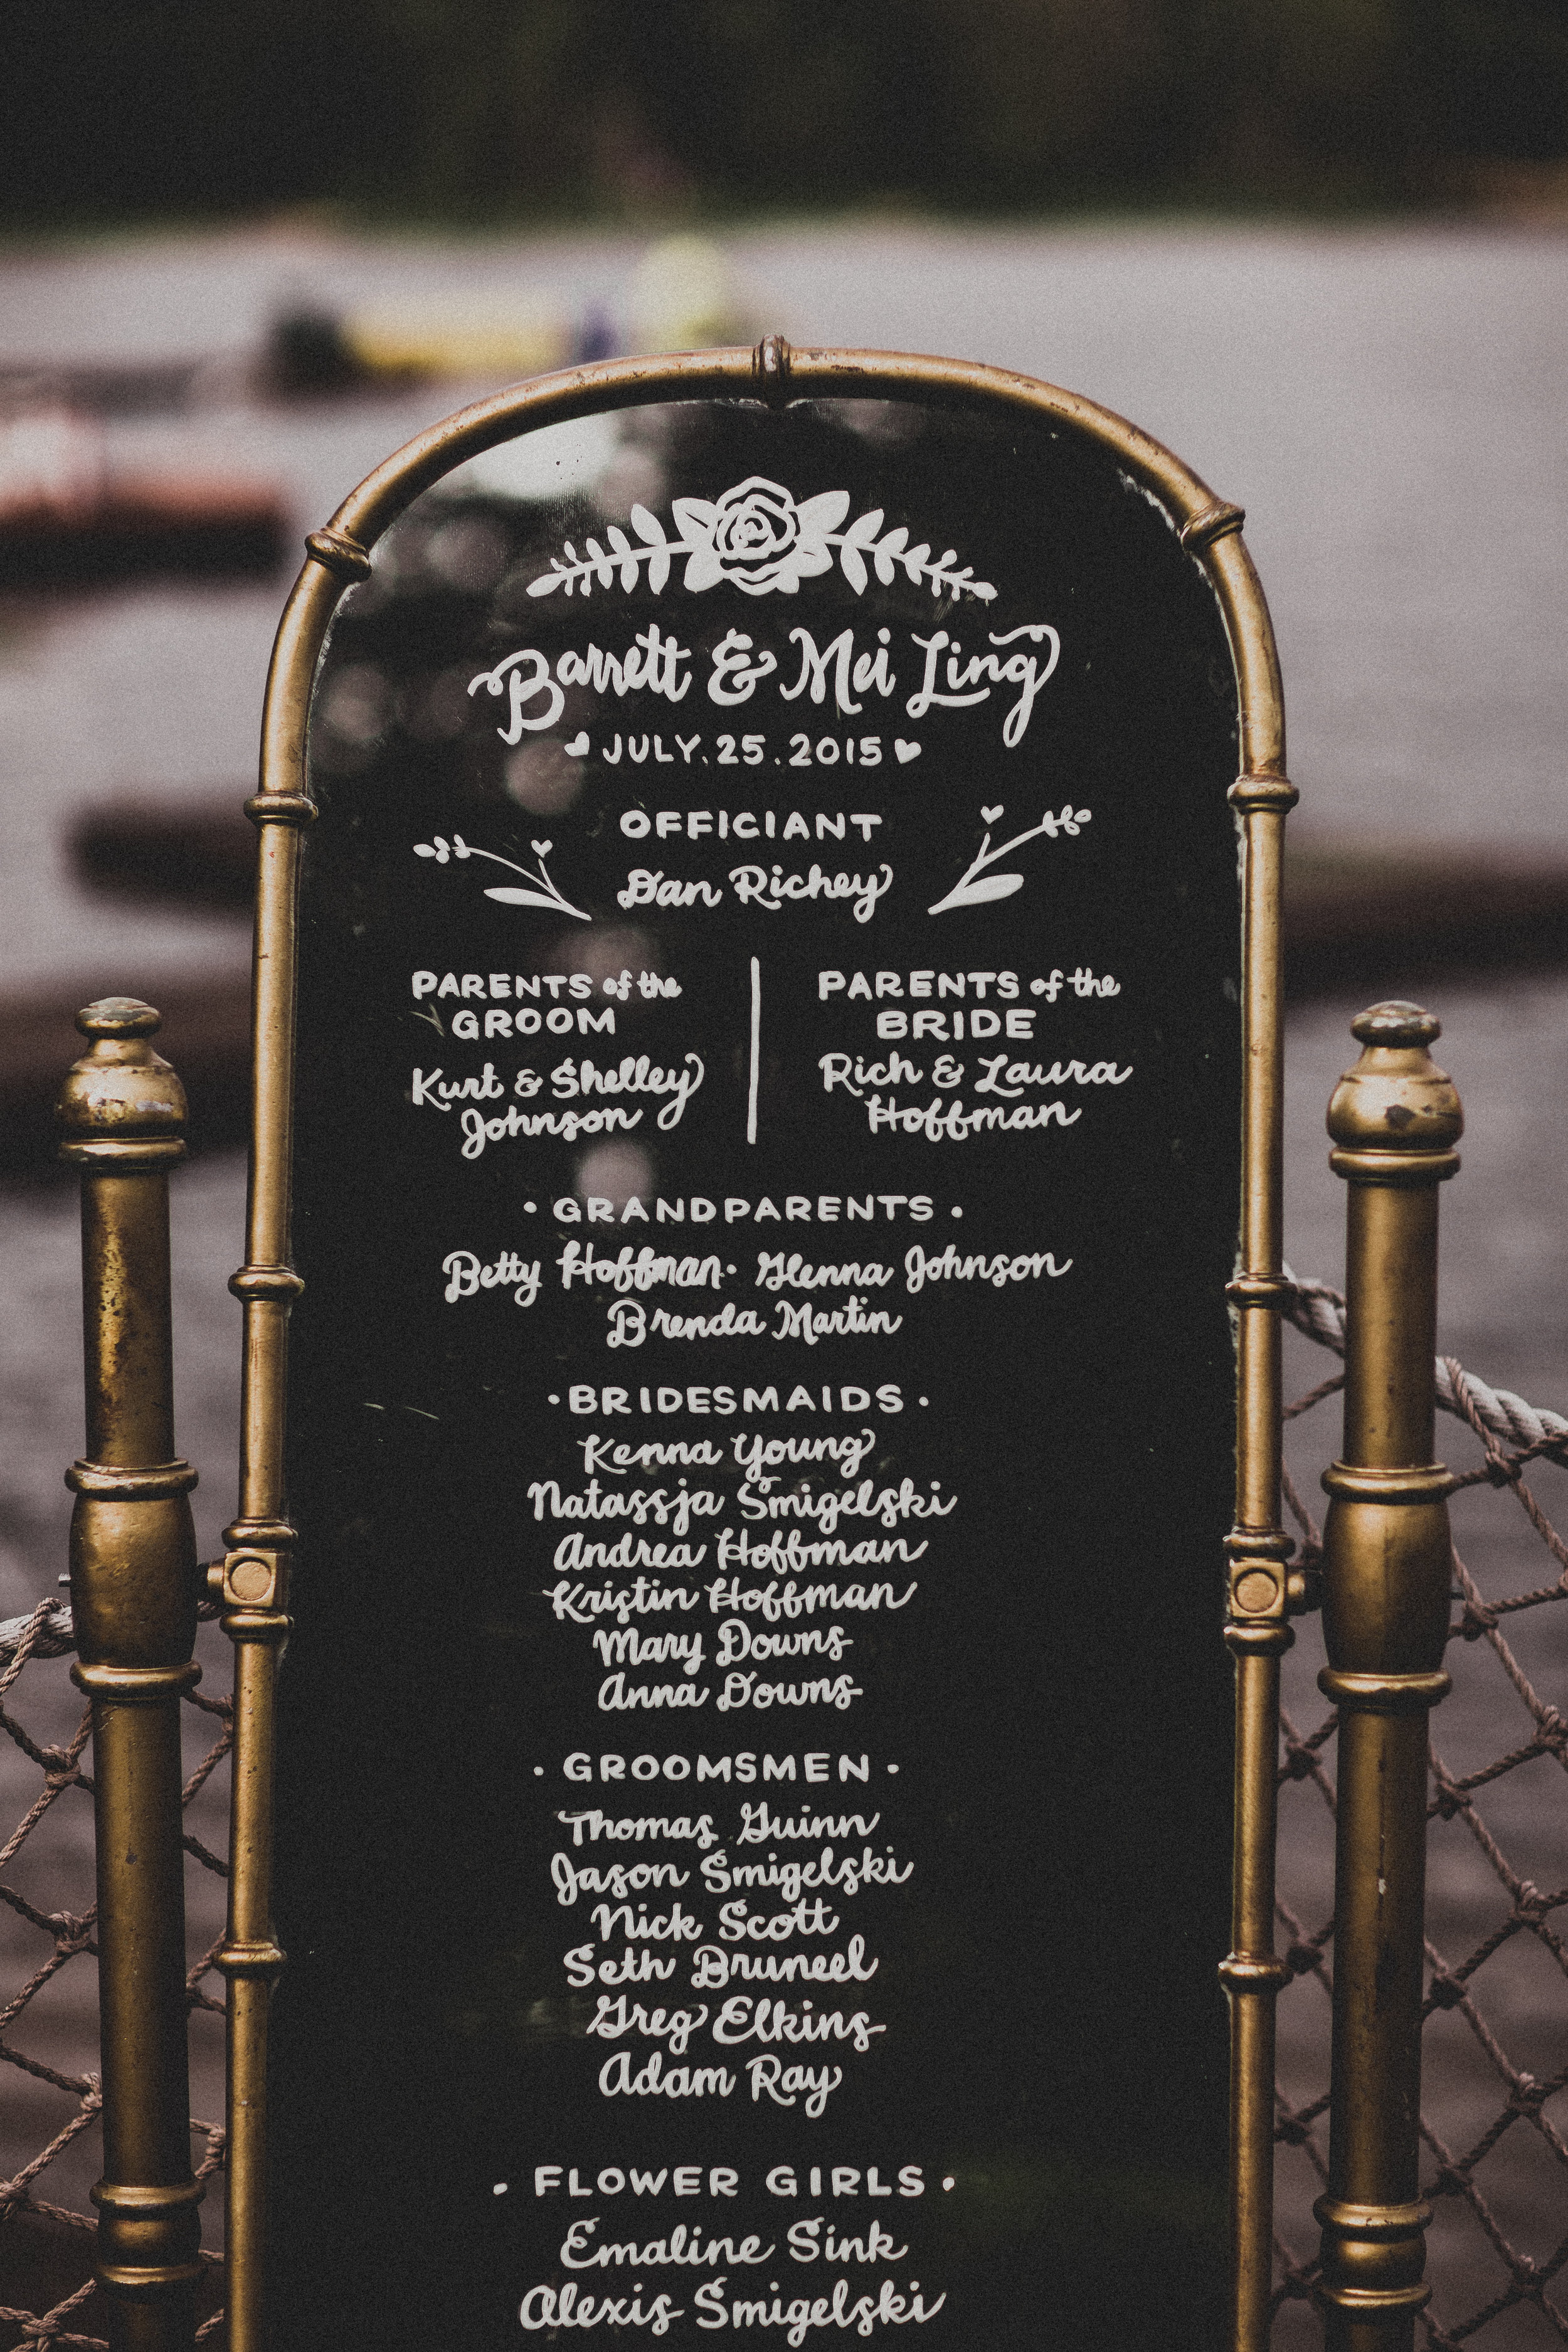 Barrett & Mei Ling
JULY.25.2015
OFFICIANT
Dan Richey
PARENTS of the
GROOM
Kurt & Shelley
Johnson
PARENTS of the
BRIDE
Rich & Laura
Hoffman
• GRANDPARENTS •
Betty Hoffman • Glenna Johnson
Brenda Martin
• BRIDESMAIDS •
Kenna Young
Natassja Smigelski
Andrea Hoffman
Kristin Hoffman
Mary Downs
Anna Downs
• GROOMSMEN •
Thomas Guinn
Jason Smigelski
Nick Scott
Seth Bruneel
Greg Elkins
Adam Ray
• FLOWER GIRLS •
Emaline Sink
Alexis Smigelski